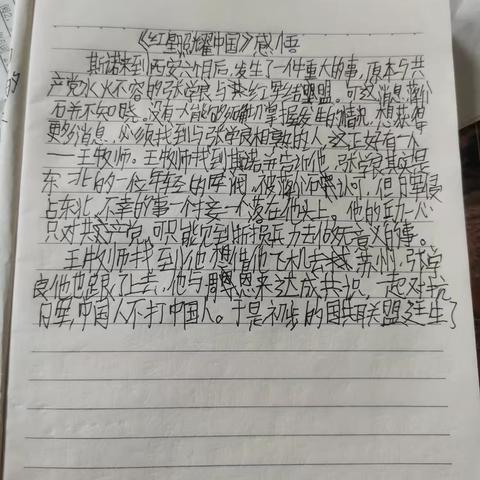 《红星照耀中国》感悟
斯诺来到西安六个月后,发生了一件重大的事,原本与共
产党水火不容的张学良与红军结盟。可这消息蒋介
石并不知晓。没有人能够确切掌握发生的情况,想获得
更多消息,必须找到与张学良相熟的人,这正好有一个
——王牧师。王牧师找到斯诺并告诉他,张学良其实是
东北的一位年轻的军阀,被蒋介石认可,但日军侵
占东北,不幸的事一件接一个落在他头上。他的
只对共产党,可只能见到折损兵力去做无意义的事。
王牧师找到他想借他飞机去苏州,张学
良他也跟了上去,他与周恩来达成共识,一起对抗
日军,中国人不打中国人。于是初步的国共联盟诞生了